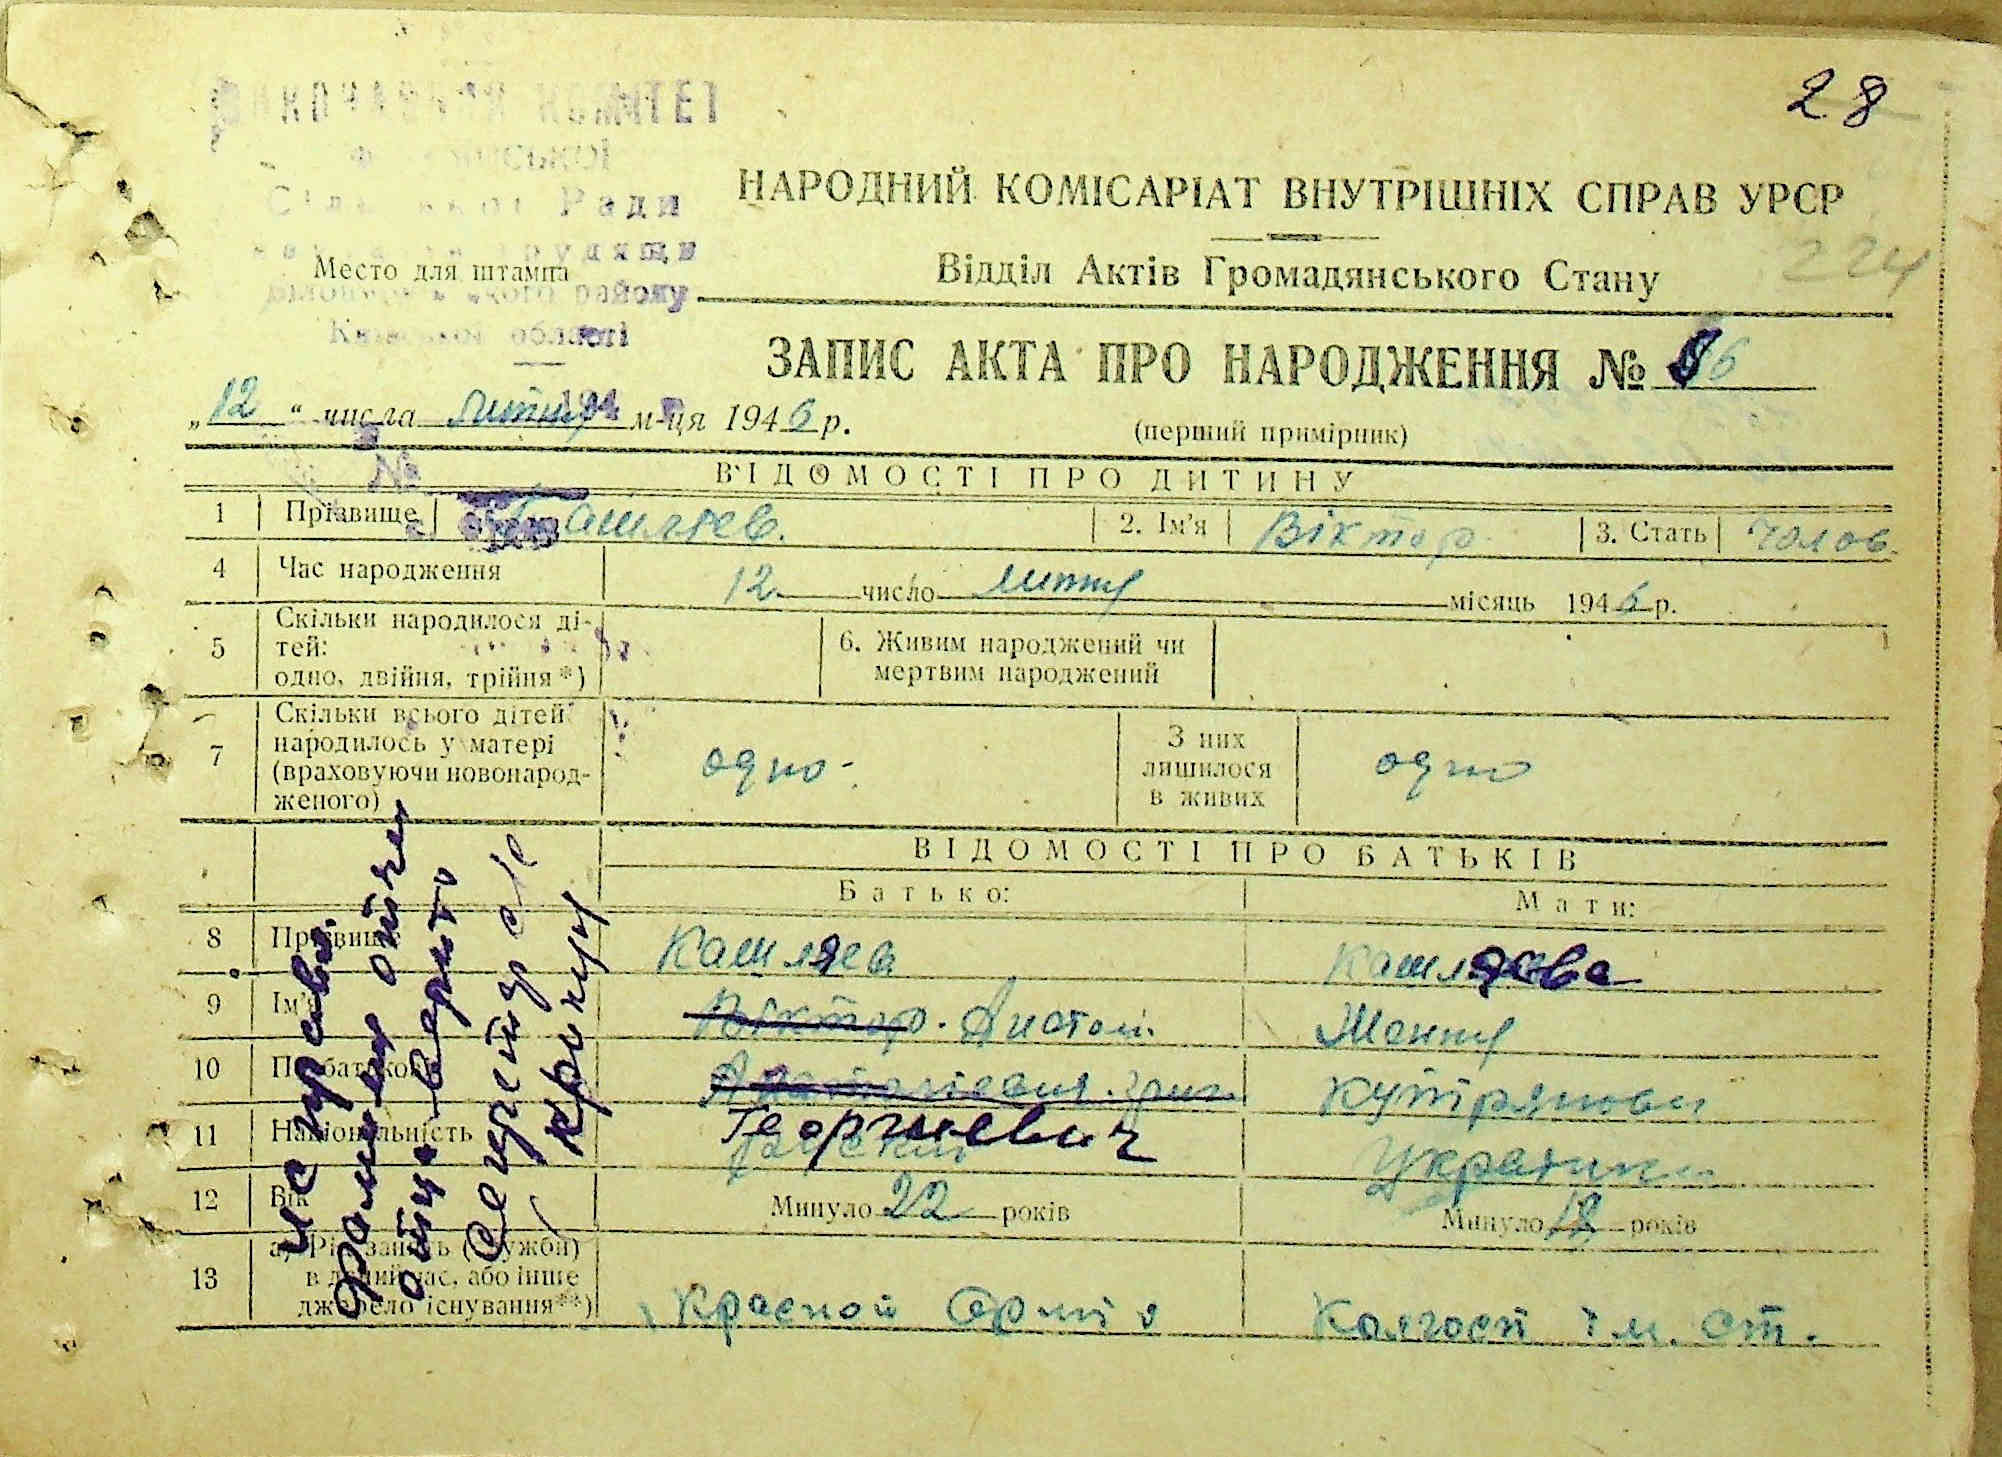 28
ВИКОНАВЧИЙ КОМІТЕТ
Ради
Место для штампа
району
області
НАРОДНИЙ КОМІСАРІАТ ВНУТРІШНІХ СПРАВ УРСР
224
Відділ Актів Громадянського Стану
ЗАПИС АКТА ПРО НАРОДЖЕННЯ №
„12“ числа лютня м-ця 1946 р.
(перший примірник)
№
ВІДОМОСТІ ПРО ДИТИНУ
1 Прізвище 2. Ім'я Віктор 3. Стать Чолов.
4 Час народження 12 число лютня місяць 1946 р.
5 Скільки народилося ді-
тей:
одно, двійня, трійня*)
6. Живим народжений чи
мертвим народжений
7 Скільки всього дітей
народилось у матері
(враховуючи новонарод-
женого)
одно -
З них
лишилося
в живих
одно
ВІДОМОСТІ ПРО БАТЬКІВ
Батько: Мати:
8 Прізвище Кашляев Кашляева
9 Ім'я Віктор.
10 По батькові
11 Національність Георгиевич
12 Вік Минуло 22 років Минуло 18 років
13 а) Рід занять (служби)
в даний час, або інше
джерело існування**)
Красной Армія Колгосп ім. ст.
Исправл.
фамилии
отца верить
Секретар с/с